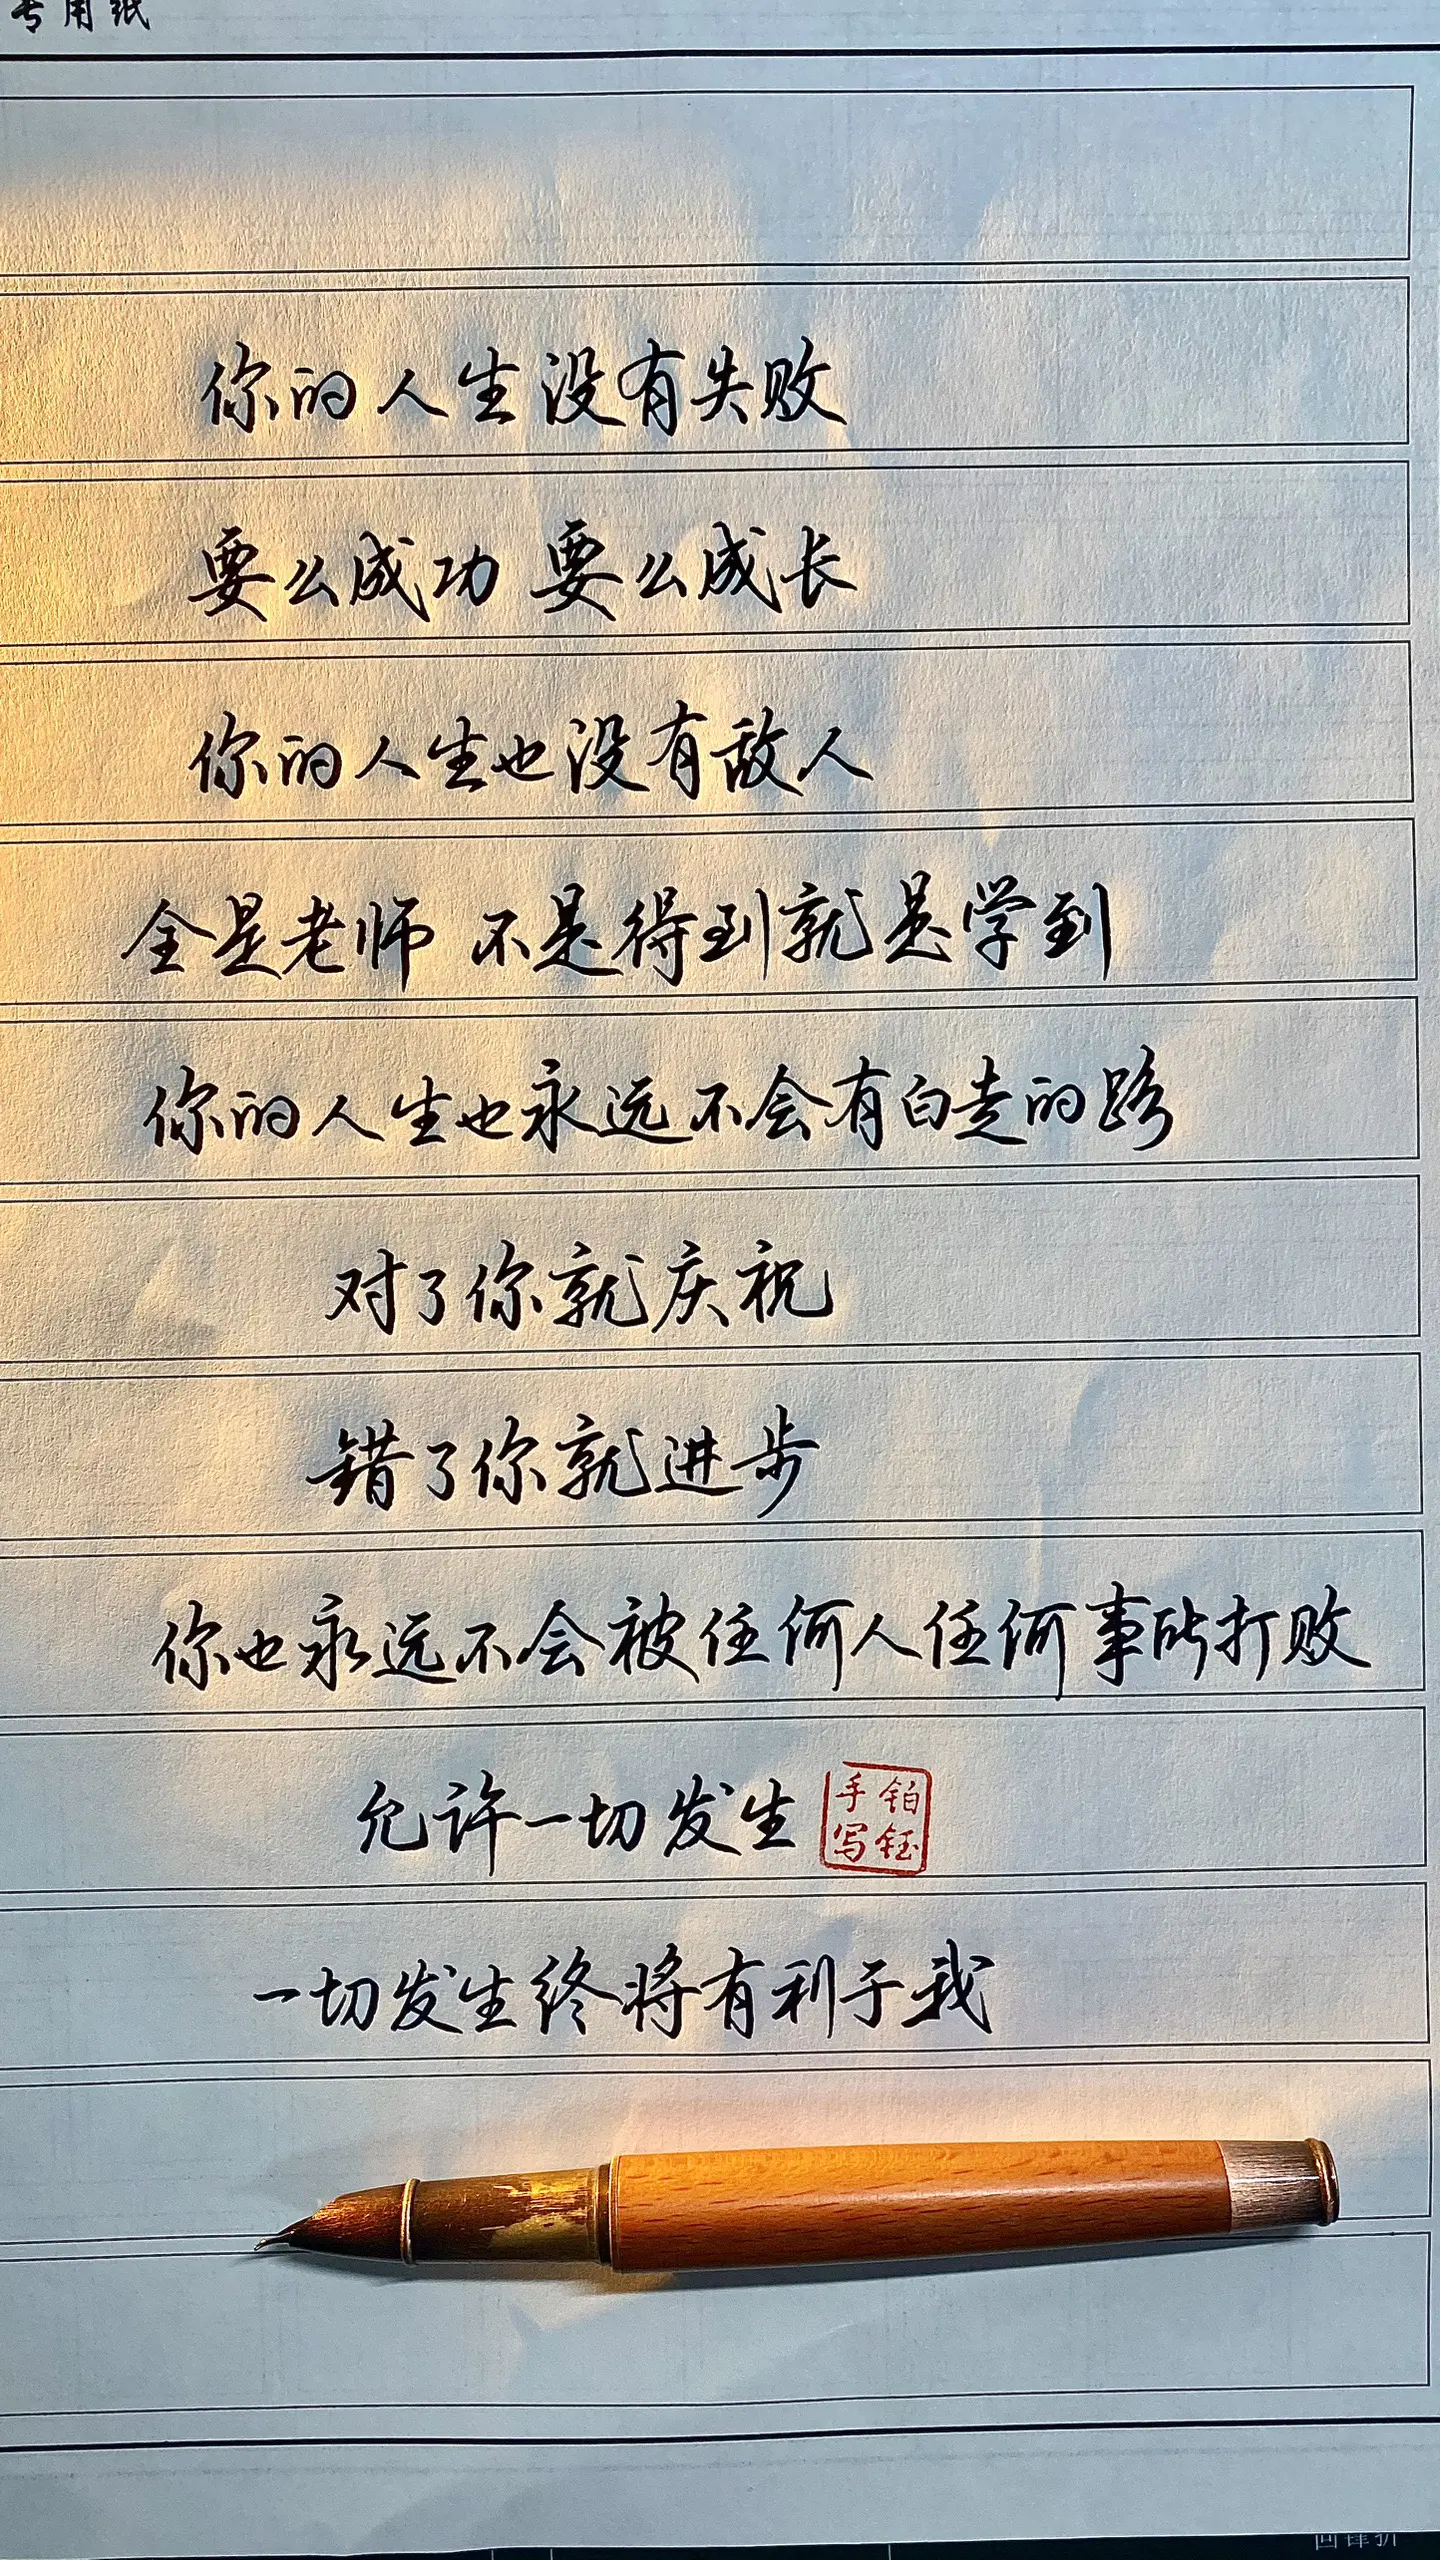 专用纸
你的人生没有失败
要么成功 要么成长
你的人生也没有敌人
全是老师 不是得到就是学到
你的人生也永远不会有白走的路
对了你就庆祝
错了你就进步
你也永远不会被任何人任何事所打败
允许一切发生
铂钰
手写
一切发生终将有利于我
回锋折